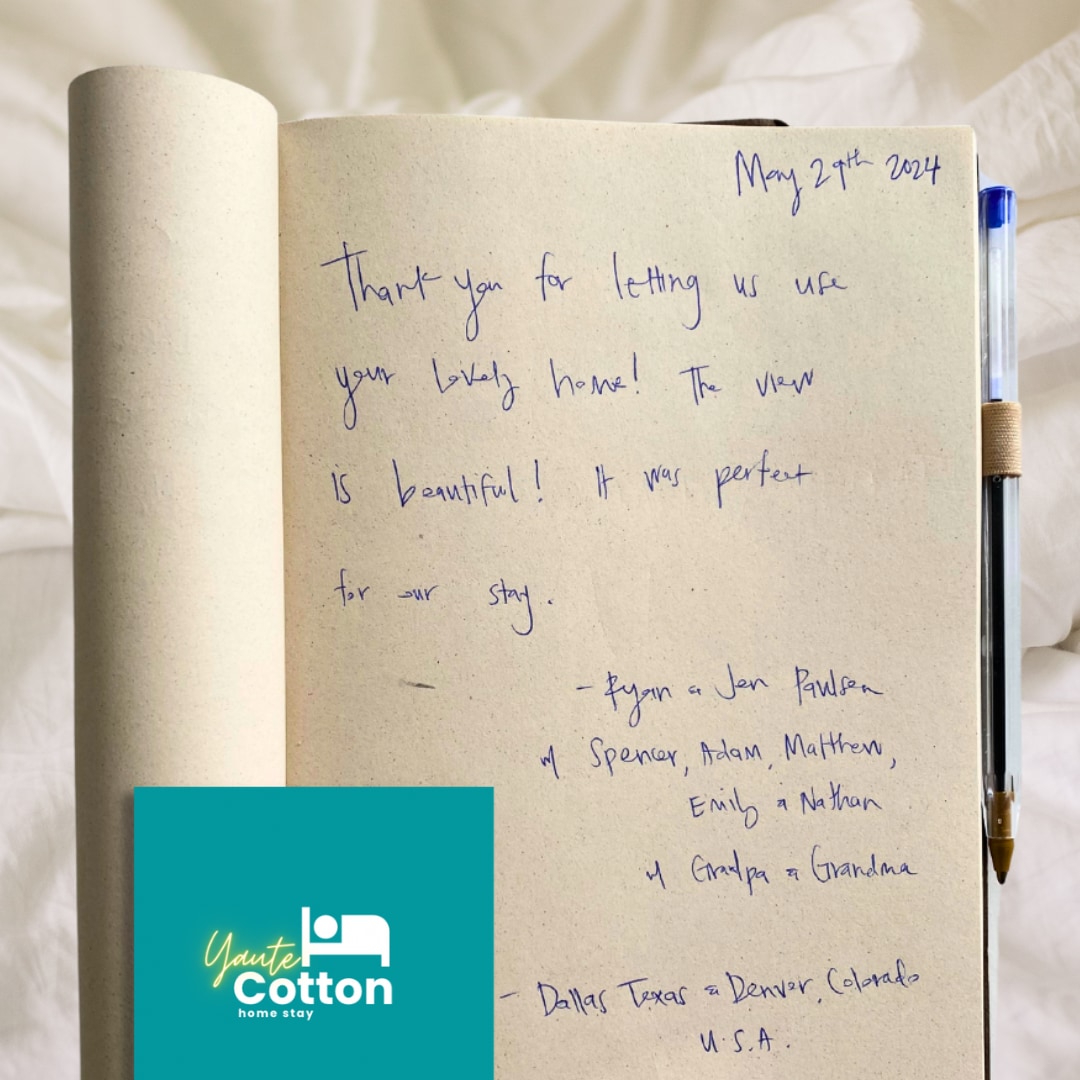 May 29th 2024
Thank you for letting us use
your lovely home! The view
is beautiful! It was perfect
for our stay.
- Ryan & Jen Paulsen
w/ Spencer, Adam, Matthew,
Emily & Nathan
w/ Grandpa & Grandma
- Dallas Texas & Denver, Colorado
U.S.A.
Yaute
Cotton
home stay